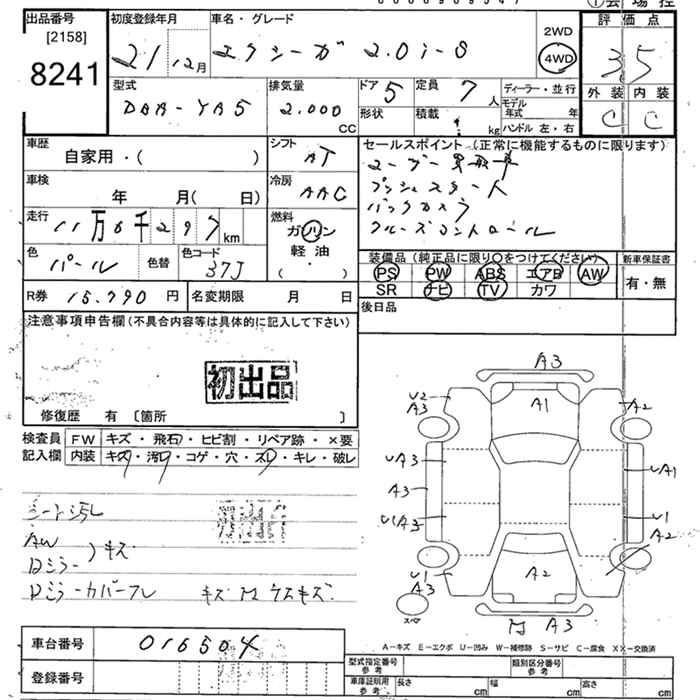 出品番号
[2158]
8241
初度登録年月
21 12月
車名・グレード
エクシーガ 2.0i-S
2WD
4WD
評価点
3.5
外装 内装
C C
型式
DBA-YA5
排気量
2.000
CC
ドア 5
形状
定員 7人
積載
kg
ディーラー・並行
モデル
年式 年
ハンドル 左・右
車歴
自家用・( )
シフト
AT
車検
年 月( 日)
冷房
AAC
走行
11万 6千 297 km
燃料
ガソリン
軽油
・( )
色
パール
色替
色コード
37J
R券 15.790 円
名変期限 月 日
セールスポイント (正常に機能するものに限ります)
ユーザー買取車
プッシュスタート
バックカメラ
クルーズコントロール
装備品 (純正品に限り○をつけてください)
新車保証書
PS PW ABS エアB AW
SR ナビ TV カワ
有・無
後日品
注意事項申告欄 (不具合内容等は具体的に記入して下さい)
初出品
修復歴 有 〔箇所 〕
検査員
記入欄
FW キズ・飛石・ヒビ割・リペア跡・×要
内装 キズ・汚レ・コゲ・穴・スレ・キレ・破レ
シート汚レ
AW
ドミラー 〉キズ
ドミラーカバーフレ キズ M ウスキズ
A3
U2
A3
A1
A2
UA3
A3
U1A3
UA1
U1
A2
U1
A3
A2
スペア
A3
車台番号 016504
登録番号
A-キズ E-エクボ U-凹み W-補修跡 S-サビ C-腐食 XX-交換済
型式指定番号
参考
類別区分番号
参考
車庫証明用
参考
長さ cm
幅 cm
高さ cm